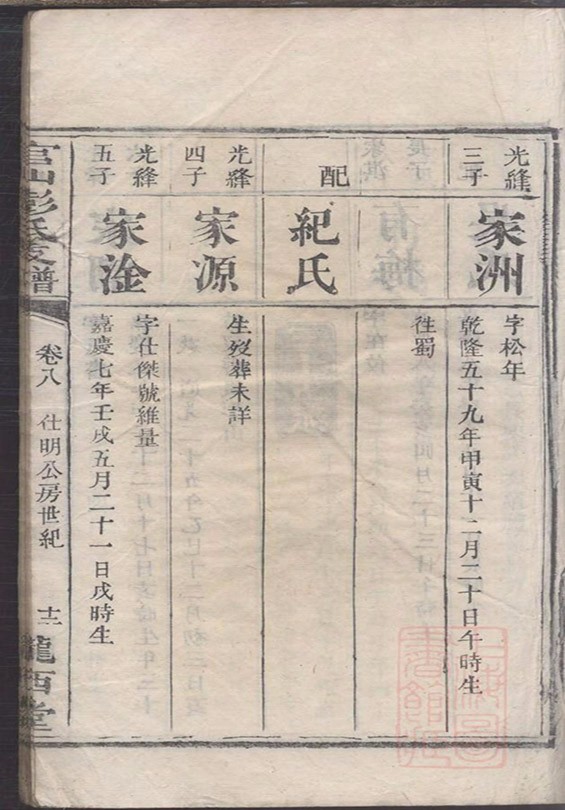 光縫
三子
家洲
字松年
乾隆五十九年甲寅十二月二十日午時生
徃蜀
配
紀氏
光縫
四子
家源
生歿葬未詳
光縫
五子
家淦
字仕傑號維量
嘉慶七年壬戌五月二十一日戌時生
官山彭氏支譜
卷八
仕明公房世紀
十二
隴西堂